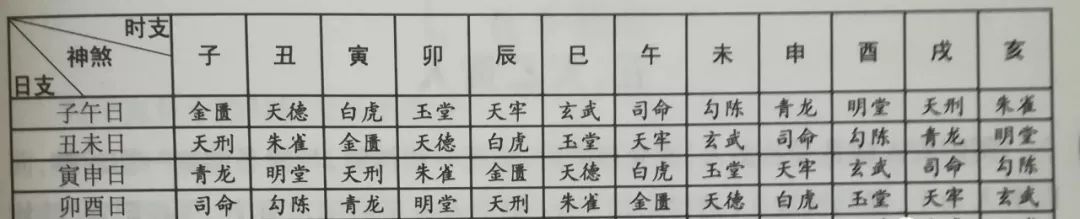 时支
神煞 子 丑 寅 卯 辰 巳 午 未 申 酉 戌 亥
日支
子午日 金匮 天德 白虎 玉堂 天牢 玄武 司命 勾陈 青龙 明堂 天刑 朱雀
丑未日 天刑 朱雀 金匮 天德 白虎 玉堂 天牢 玄武 司命 勾陈 青龙 明堂
寅申日 青龙 明堂 天刑 朱雀 金匮 天德 白虎 玉堂 天牢 玄武 司命 勾陈
卯酉日 司命 勾陈 青龙 明堂 天刑 朱雀 金匮 天德 白虎 玉堂 天牢 玄武